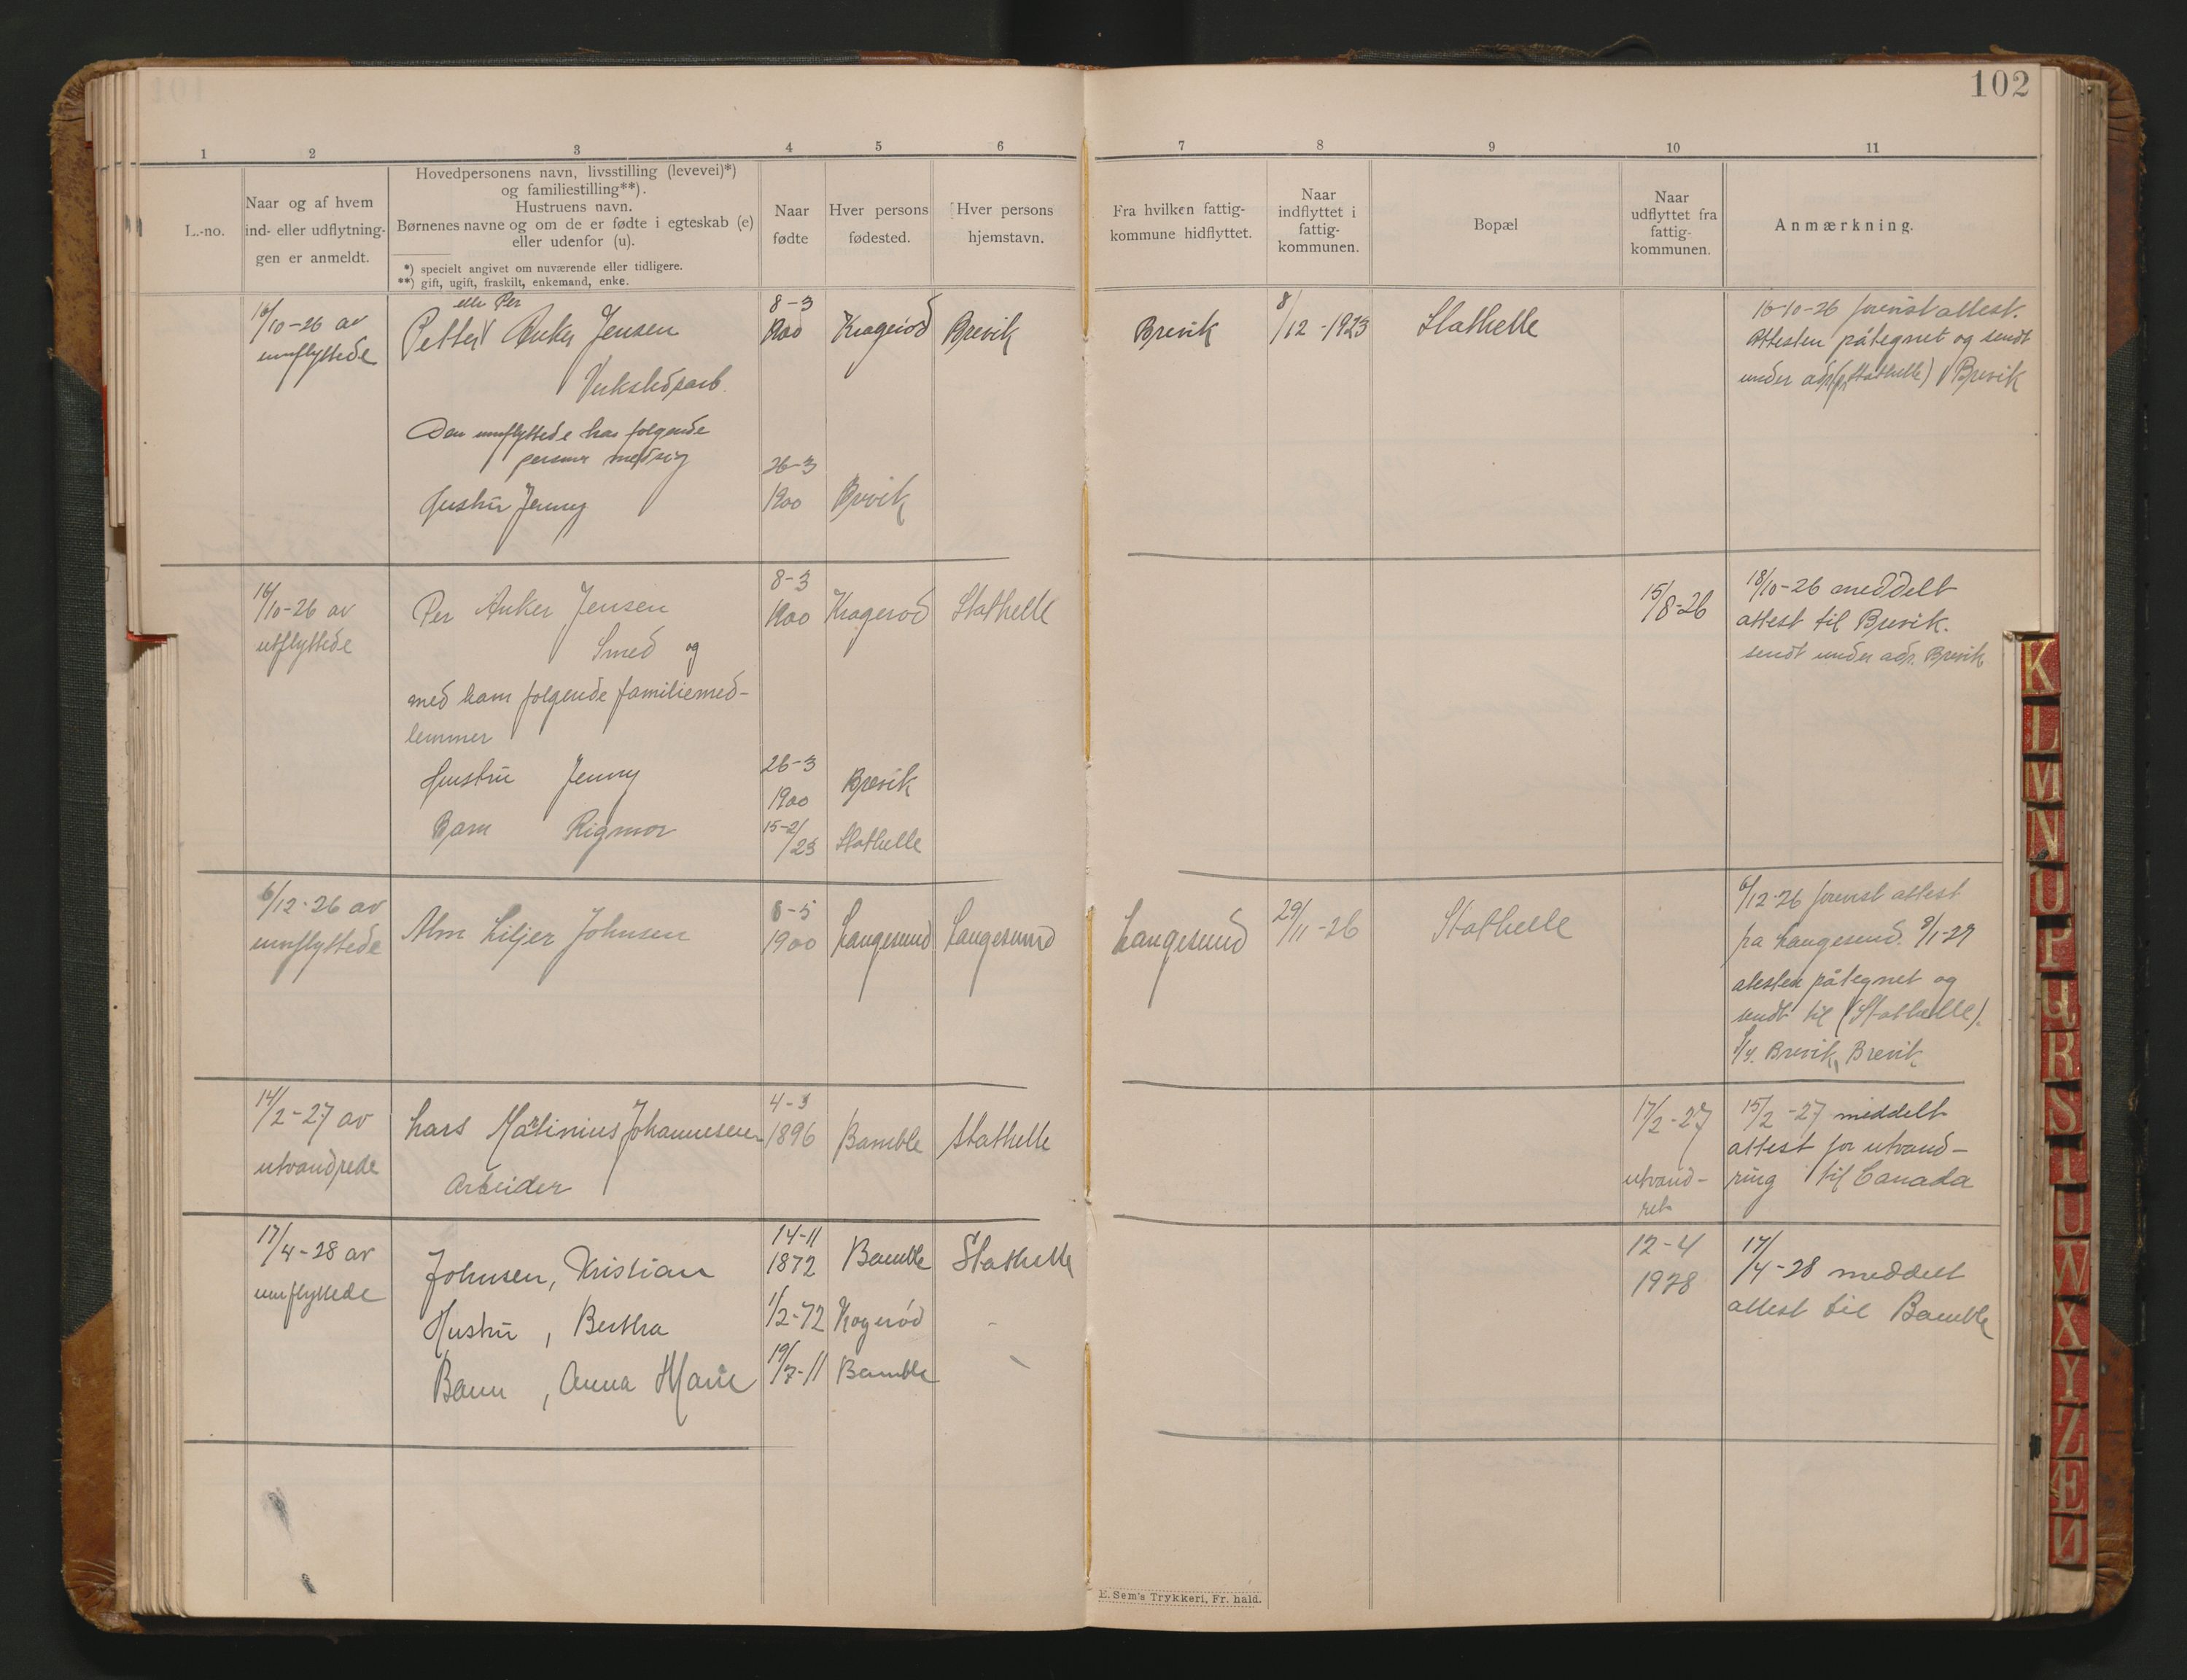 102
1 2 3 4 5 6 7 8 9 10 11
L.-no.
Naar og af hvem
ind- eller udflytnin-
gen er anmeldt.
Hovedpersonens navn, livsstilling (levevei)*)
og familiestilling**).
Hustruens navn.
Børnenes navne og om de er fødte i egteskab (e)
eller udenfor (u).
*) specielt angivet om nuværende eller tidligere.
**) gift, ugift, fraskilt, enkemand, enke.
Naar
fødte
Hver persons
fødested.
Hver persons
hjemstavn.
Fra hvilken fattig-
kommune hidflyttet.
Naar
indflyttet i
fattig-
kommunen.
Bopæl
Naar
udflyttet fra
fattig-
kommunen.
Anmærkning.
16/10-26 av
innflyttede
eller Per
Petter Anker Jensen
Verkstedsarb.
Den innflyttede har følgende
personer med sig
Hustru Jenny
8-3
1900
26-3
1900
Kragerød
Brevik
Brevik
Brevik
8/12-1923
Stathelle
16-10-26 forevist attest.
Attesten påtegnet og sendt
under adr (pr Stathelle) Brevik
16/10-26 av
utflyttede
Per Anker Jensen
Smed og
med ham følgende familiemed-
lemmer
Hustru Jenny
Barn Rigmor
8-3
1900
26-3
1900
15-2/23
Kragerød
Brevik
Stathelle
Stathelle
15/8-26
18/10-26 meddelt
attest til Brevik.
sendt under adr. Brevik
6/12-26 av
innflyttede
Alm Liljer Johnsen
6-5
1900
Langesund
Langesund
Langesund
29/11-26
Stathelle
6/12-26 forevist attest
fra Langesund. 9/1-27
attesten påtegnet og
sendt til (Stathelle).
Brevik, Brevik
14/2-27 av
utvandrede
Lars Martinius Johannesen
Arbeider
4-3
1896
Bamble
Stathelle
17/2-27
utvand-
ret
15/2-27 meddelt
attest for utvand-
ring til Canada
17/4-28 av
innflyttede
Johnsen, Kristian
Hustru, Bertha
Barn, Anna Marie
14-11
1872
1/2-72
19/7-11
Bamble
Kragerød
Bamble
Stathelle
12-4
1928
17/4-28 meddelt
attest til Bamble
E. Sem's Trykkeri, Fr. hald.
K
L
M
N
O
P
R
S
T
U
W
X
Y
Z
Æ